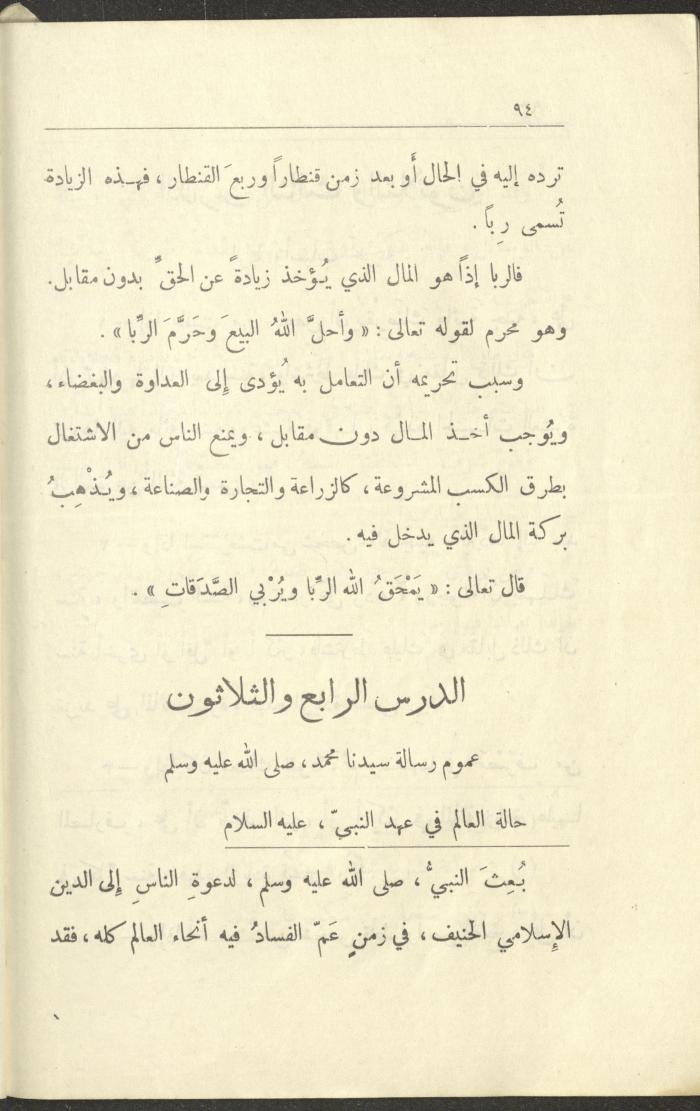 ٩٤
ترده إليه في الحال أَو بعد زمن قنطاراً وربعَ القنطار ، فهـذه الزيادة
تُسمى رِباً .
فالربا إذاً هو المال الذي يُؤخذ زيادةً عن الحقِّ بدون مقابل.
وهو محرم لقوله تعالى : « وأحلَّ اللهُ البيعَ وحَرَّمَ الرِّبا » .
وسبب تحريمه أن التعامل به يُؤدى إلى العداوة والبغضاء ،
ويُوجب أخـذ المـال دون مقابل ، ويمنع الناس من الاشتغال
بطرق الكسب المشروعة ، كالزراعة والتجارة والصناعة ، ويُذْهِبُ
بركة المال الذي يدخل فيه .
قال تعالى : « يَمْحَقُ الله الرِّبا ويُرْبي الصَّدَقاتِ » .
الدرس الرابع والثلاثون
عموم رسالة سيدنا محمد ، صلى الله عليه وسلم
حالة العالم في عهد النبيّ ، عليه السلام
بُعِثَ النبيُّ ، صلى الله عليه وسلم ، لدعوةِ الناسِ إلى الدين
الإسلامي الحنيف ، في زمنٍ عَمّ الفسادُ فيه أنحاء العالم كله ، فقد